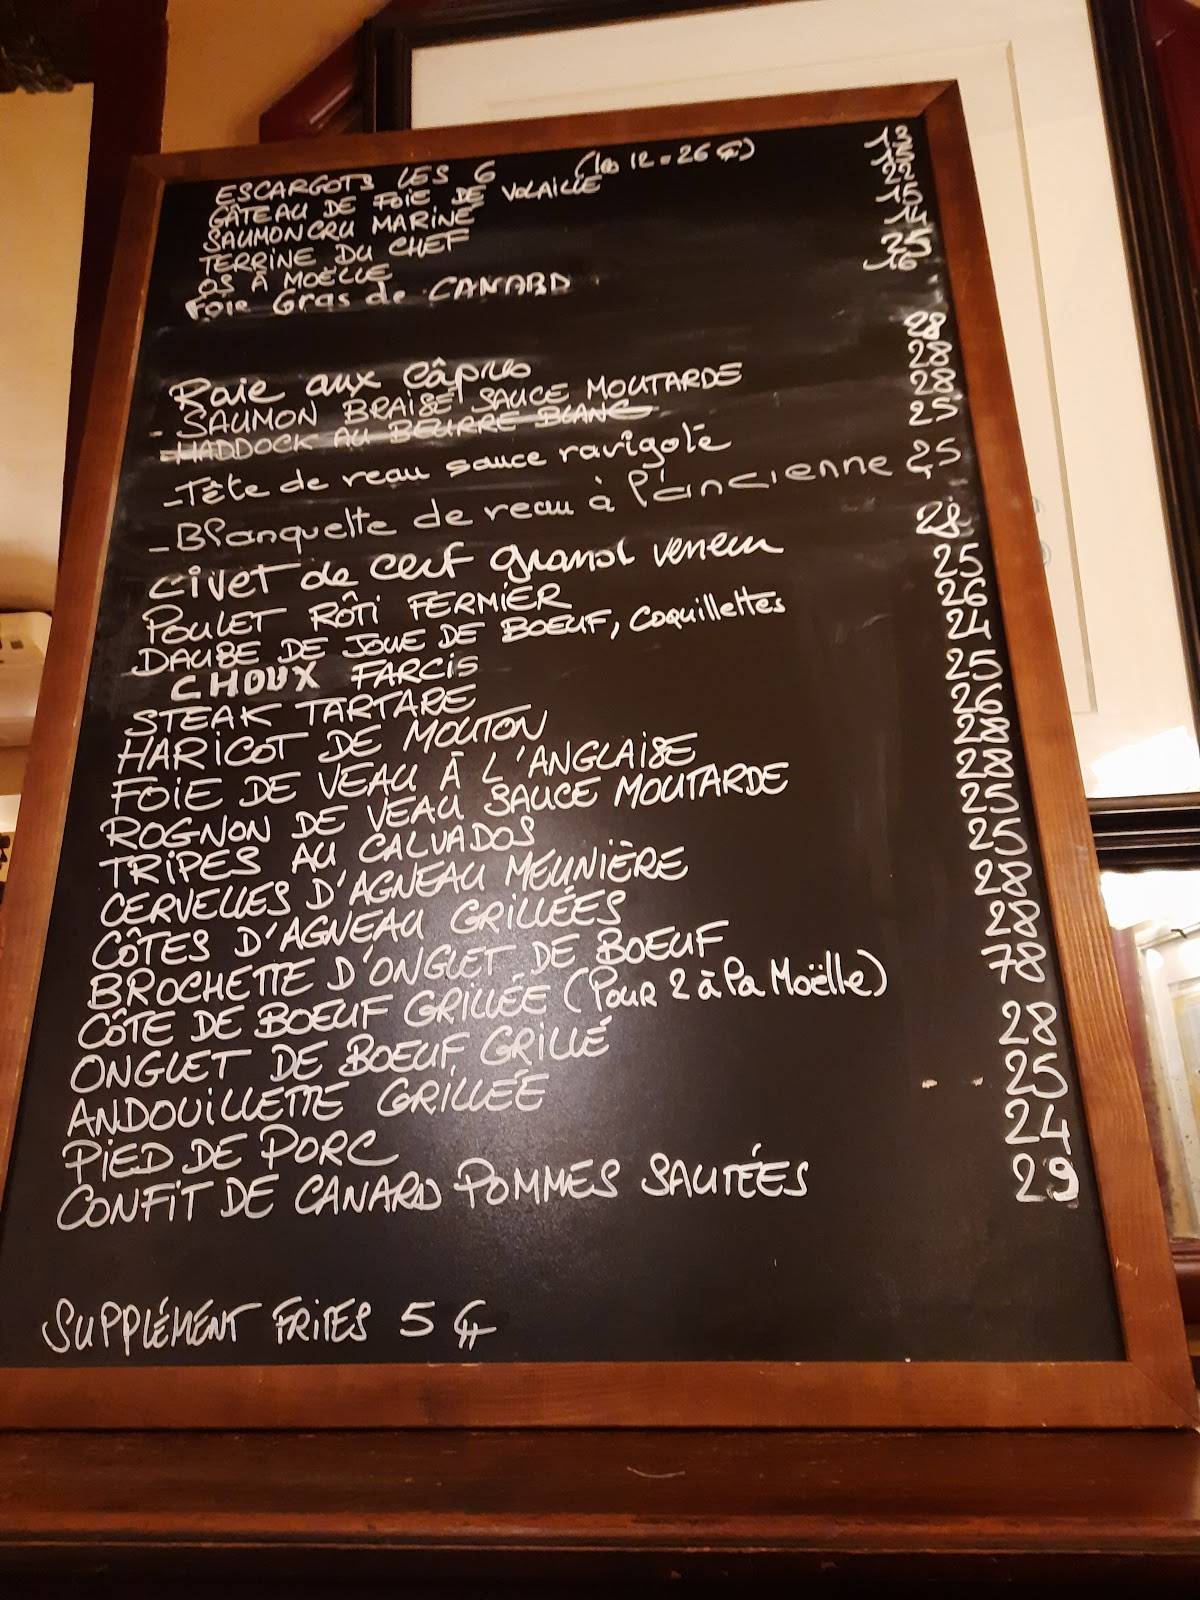 ESCARGOTS LES 6 (les 12 = 26 €) 13
GÂTEAU DE FOIE DE VOLAILLE 15
SAUMON CRU MARINÉ 22
TERRINE DU CHEF 15
OS À MOËLLE 14
FOIE Gras de CANARD 25
16
Raie aux câpres 28
- SAUMON BRAISÉ SAUCE MOUTARDE 28
- HADDOCK AU BEURRE BLANC 28
- Tête de veau sauce ravigote 25
- Blanquette de veau à l'ancienne 25
civet de cerf grand veneur 28
POULET RÔTI FERMIER 25
DAUBE DE JOUE DE BOEUF, coquillettes 26
CHOUX FARCIS 24
STEAK TARTARE 25
HARICOT DE MOUTON 26
FOIE DE VEAU À L'ANGLAISE 28
ROGNON DE VEAU SAUCE MOUTARDE 28
TRIPES AU CALVADOS 25
CERVELLES D'AGNEAU MEUNIÈRE 25
CÔTES D'AGNEAU GRILLÉES 28
BROCHETTE D'ONGLET DE BOEUF 28
CÔTE DE BOEUF GRILLÉE (Pour 2 à la Moëlle) 78
ONGLET DE BOEUF GRILLÉ 28
ANDOUILLETTE GRILLÉE 25
PIED DE PORC 24
CONFIT DE CANARD POMMES SAUTÉES 29
SUPPLÉMENT FRITES 5 €